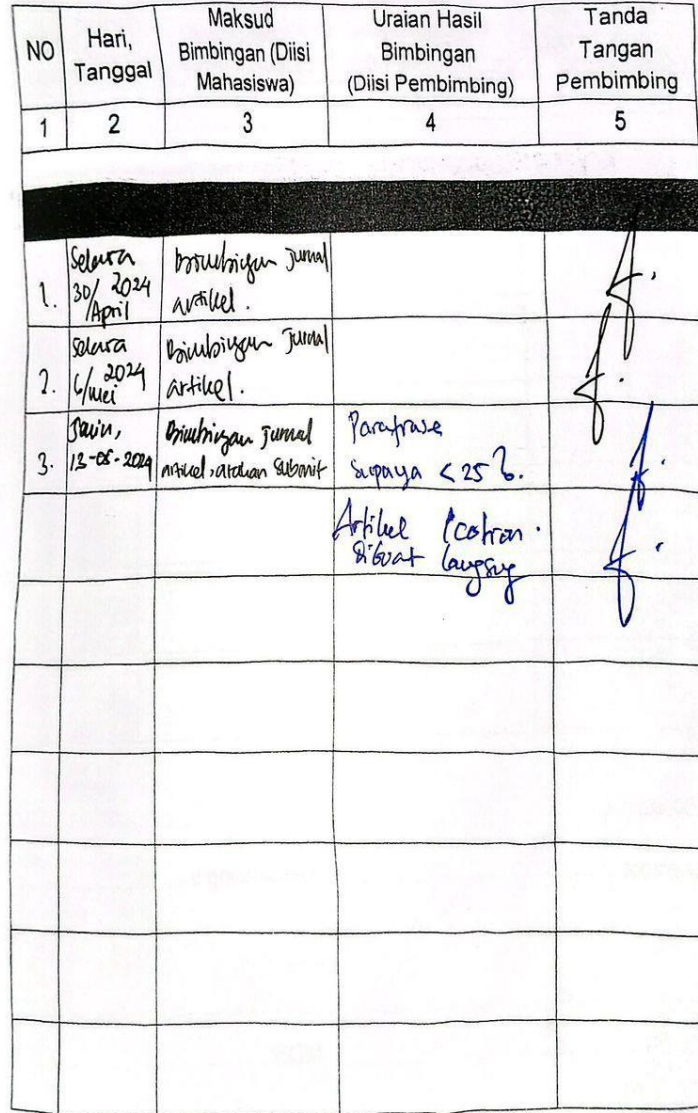 NO
Hari,
Tanggal
Maksud
Bimbingan (Diisi
Mahasiswa)
Uraian Hasil
Bimbingan
(Diisi Pembimbing)
Tanda
Tangan
Pembimbing
1 2 3 4 5
1.
Selasa
30/April 2024
Bimbingan Jurnal
artikel.
2.
Selasa
6/mei 2024
Bimbingan Jurnal
artikel.
3.
Senin,
13-05-2024
Bimbingan Jurnal
artikel, arahan Submit
Parafrase
Supaya < 25 %.
Artikel
Dibuat langsung